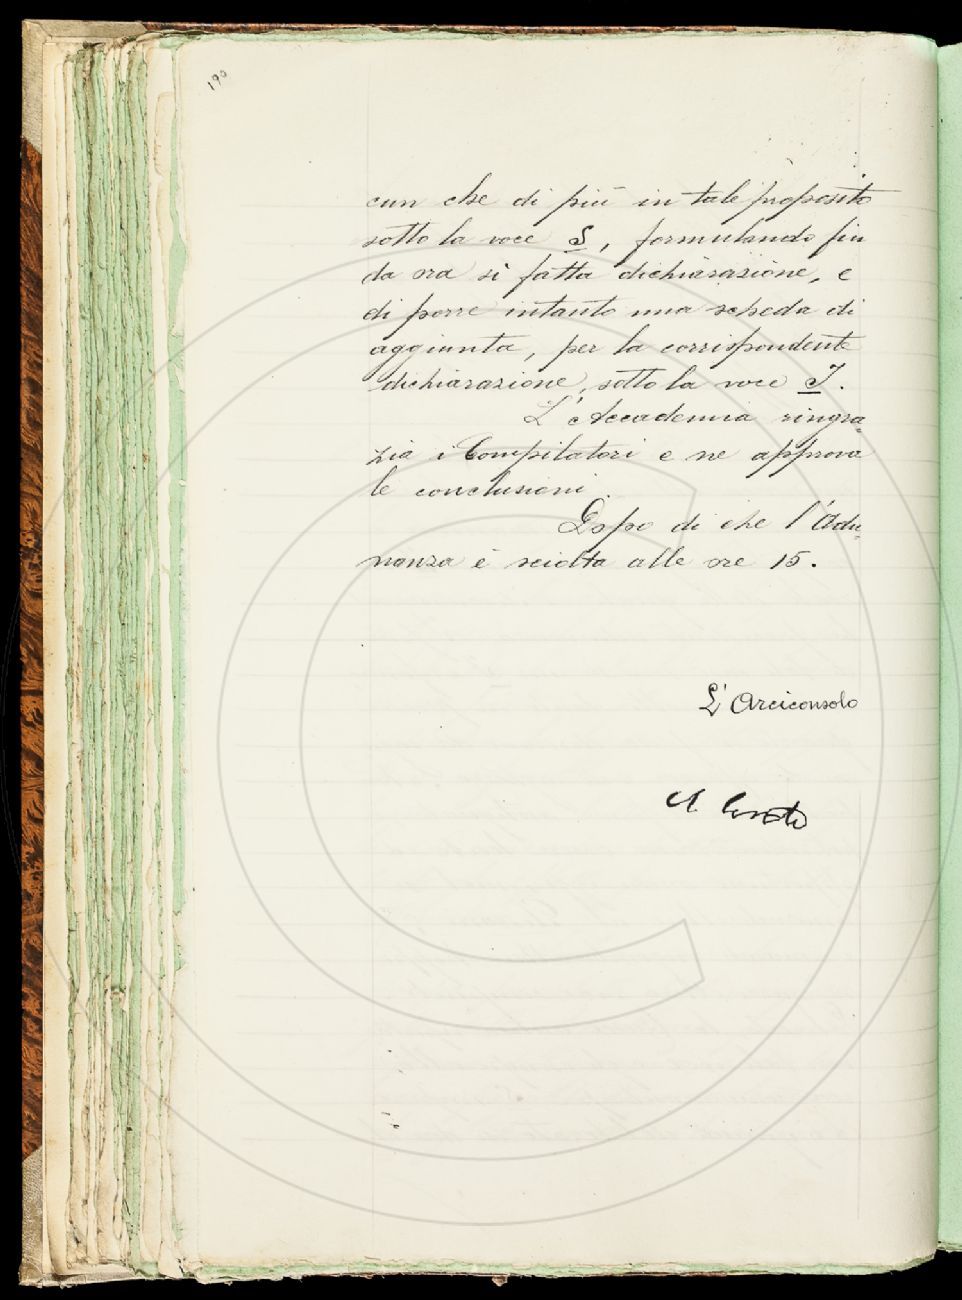 190
cun che di più in tale proposito
sotto la voce S, formulando fin
da ora sì fatta dichiarazione, e
di porre intanto una scheda di
aggiunta, per la corrispondente
dichiarazione, sotto la voce I.
L'Accademia ringra-
zia i Compilatori e ne approva
le conclusioni.
Dopo di che l'Adu-
nanza è sciolta alle ore 15.
L'Arciconsolo